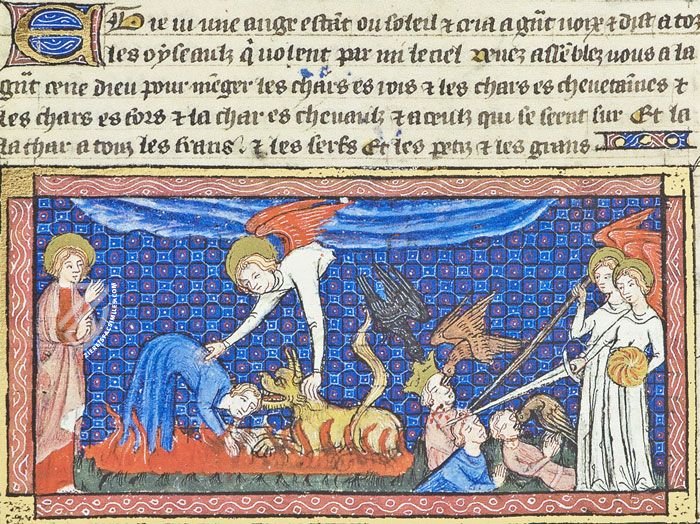 Et ie ui une ange estāt ou soleil ⁊ cria a gñt uoix ⁊ dist a toz
les oyseaulx q̄ uolent par mi le ciel uenez assēblez uous a la
gñt cene dieu pour mēger les chars es rois ⁊ les chars es cheuetaines ⁊
les chars es fors ⁊ la char es cheuaulx ⁊ a ceulx qui se seent sur Et la
la char a touz les frans ⁊ les serfs Et les petiz ⁊ les grans